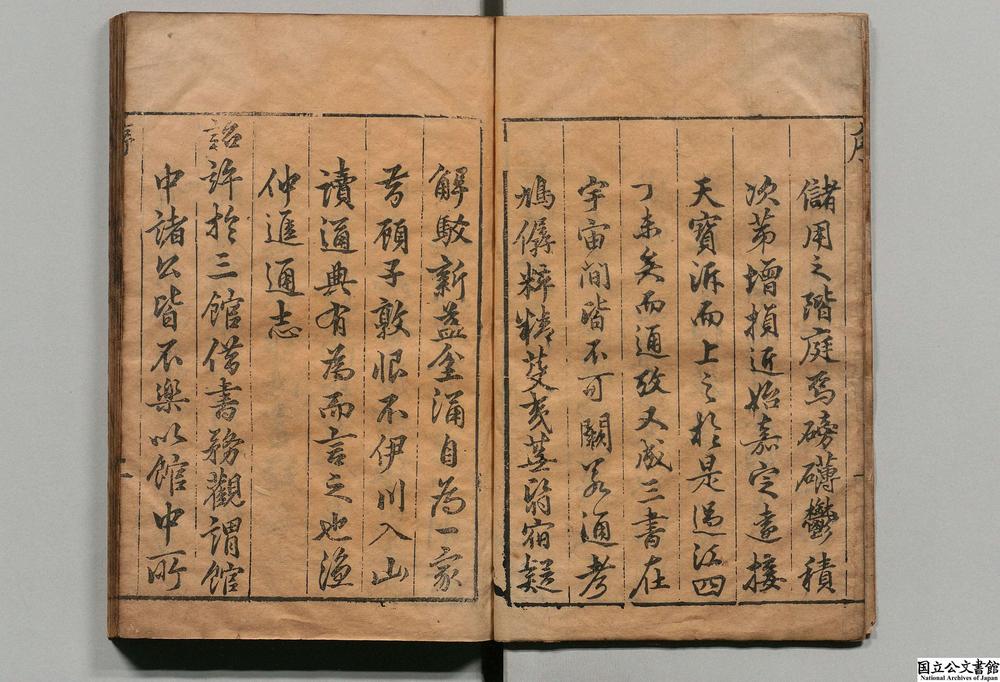 序
儲用之階庭焉磅礴鬱積
次第增損近始嘉定遠接
天寶泝而上之於是過江四
丁未矣而通攷又成三書在
宇宙間皆不可闕若通考
鳩僝粹精芟夷蕪翳宿疑
解駁新益坌涌自為一家
昔顧子敦恨不伊川入山
讀通典有為而言之也漁
仲進通志
詔許於三館借書務觀謂館
中諸公皆不樂以館中所
序
国立公文書館
National Archives of Japan